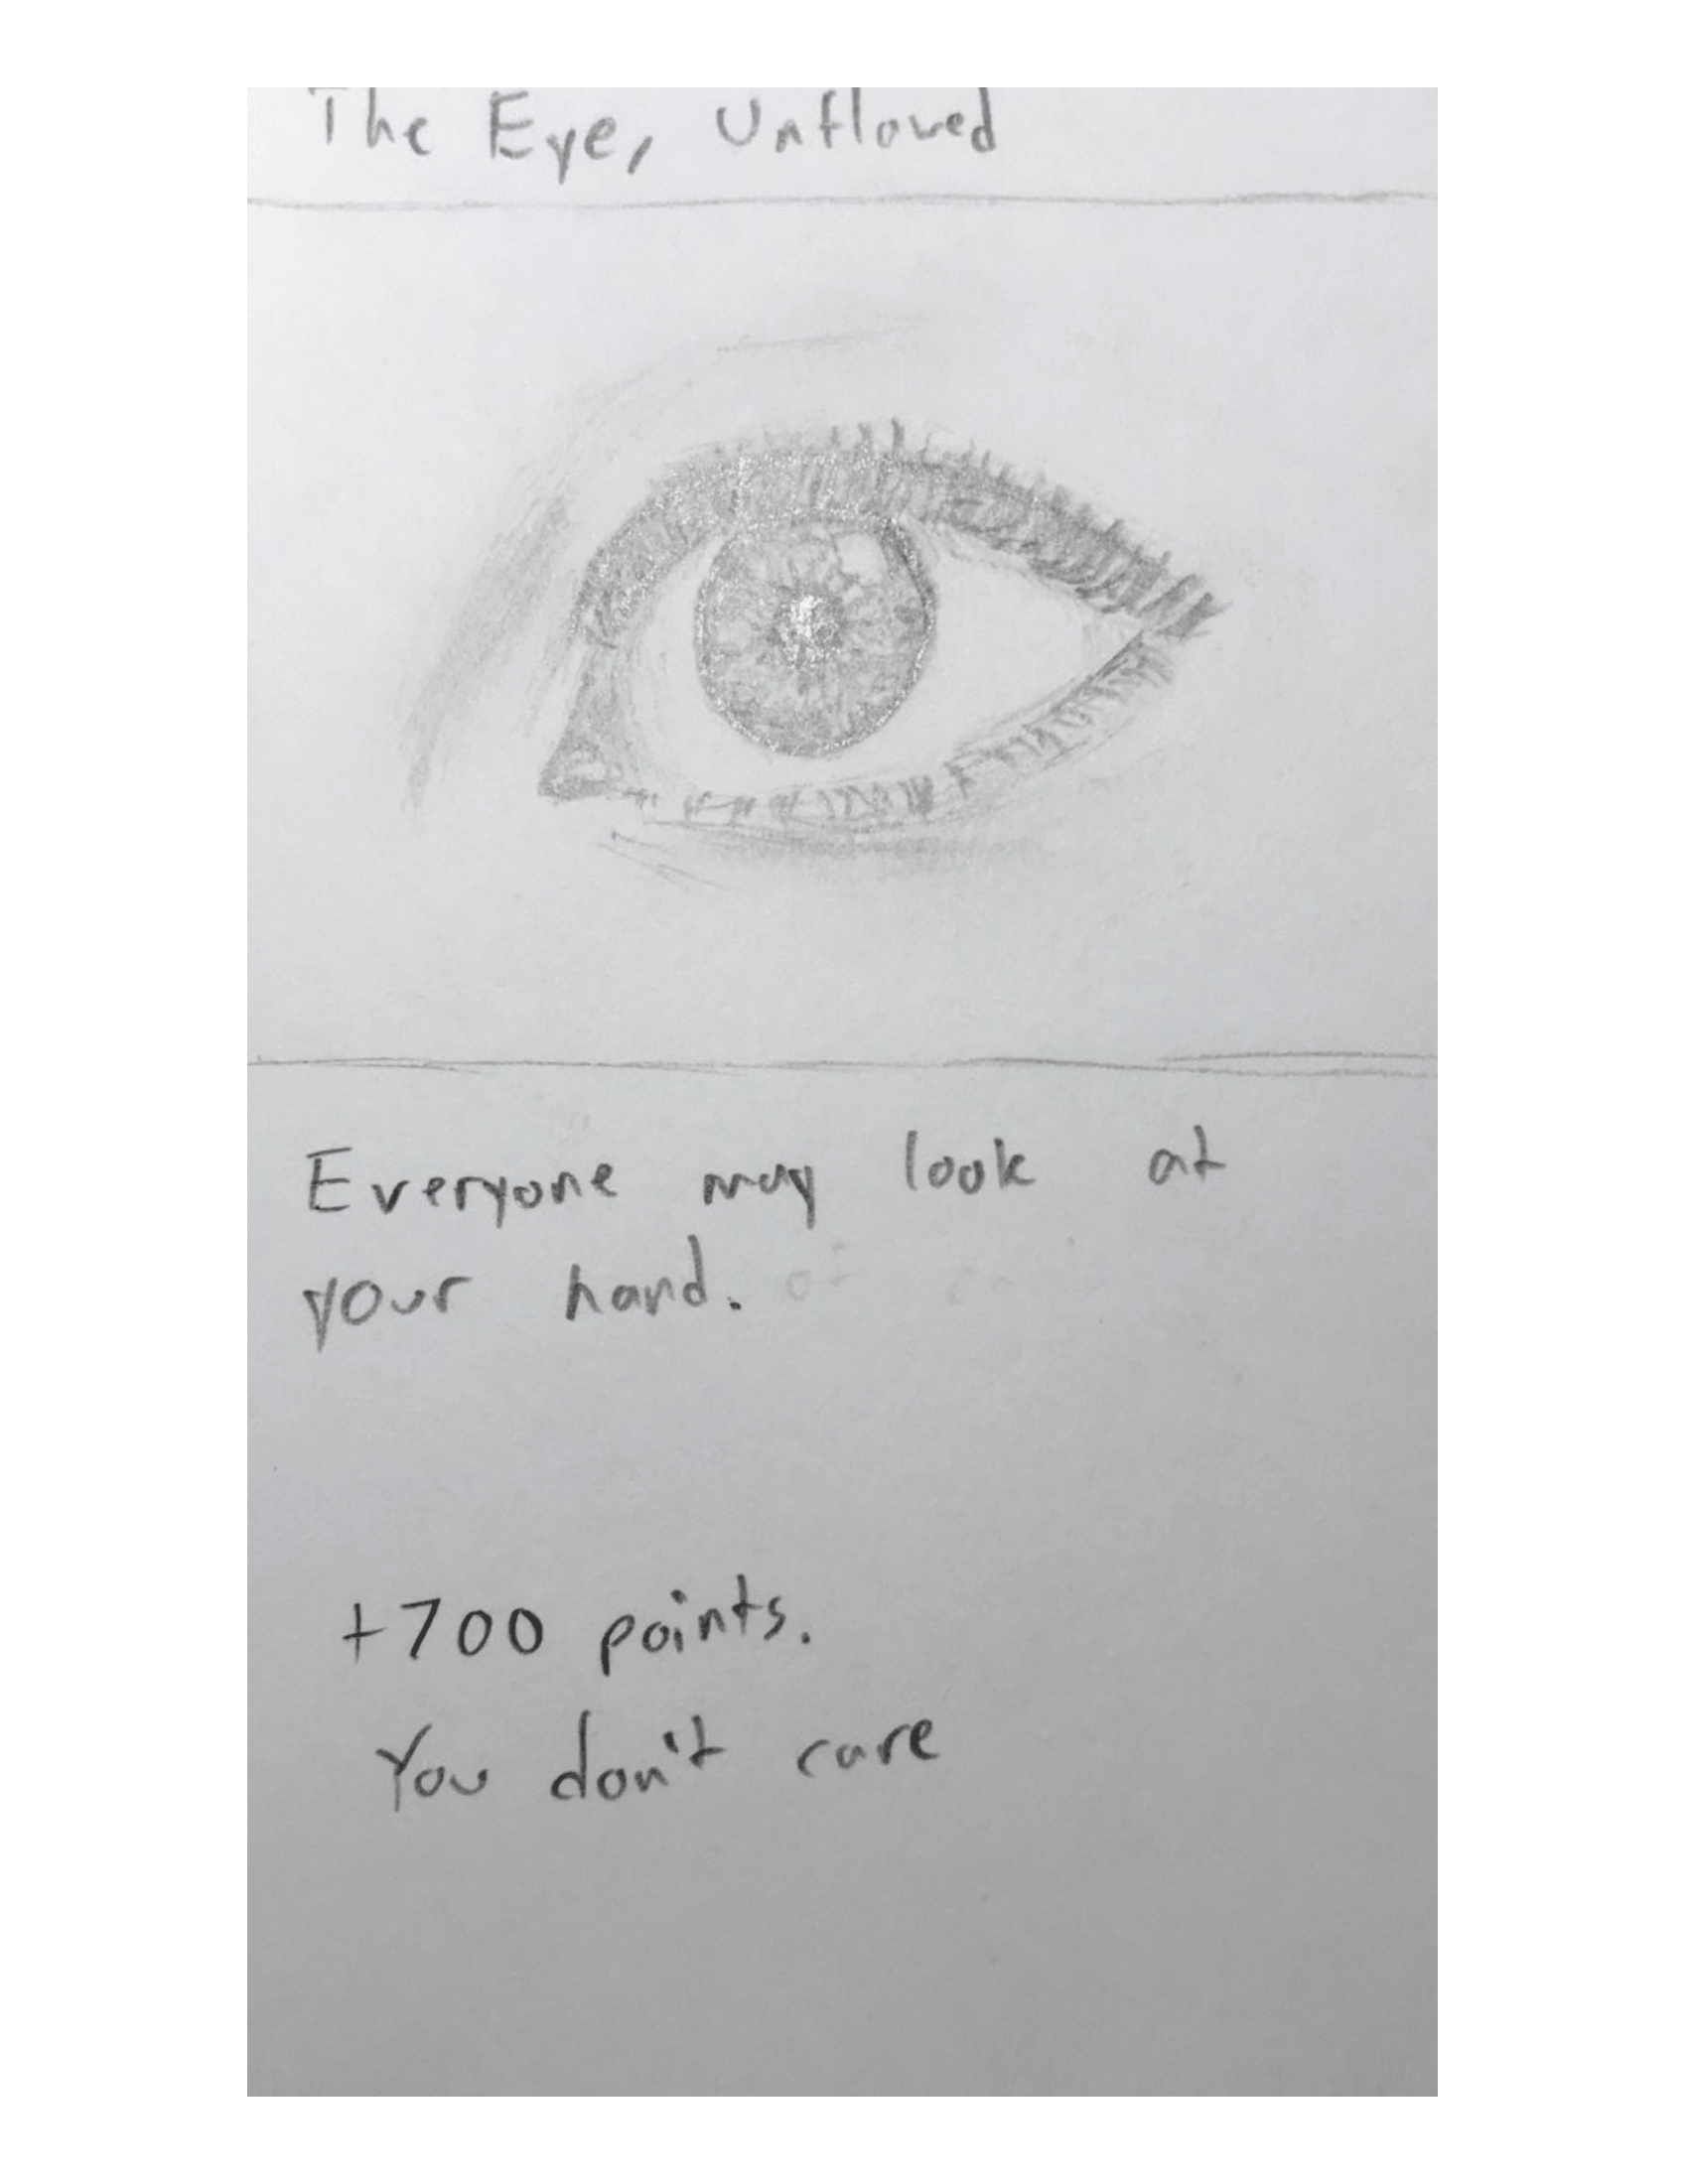 The Eye, Unflowed
Everyone may look at
your hand. of
+700 points.
You don't care